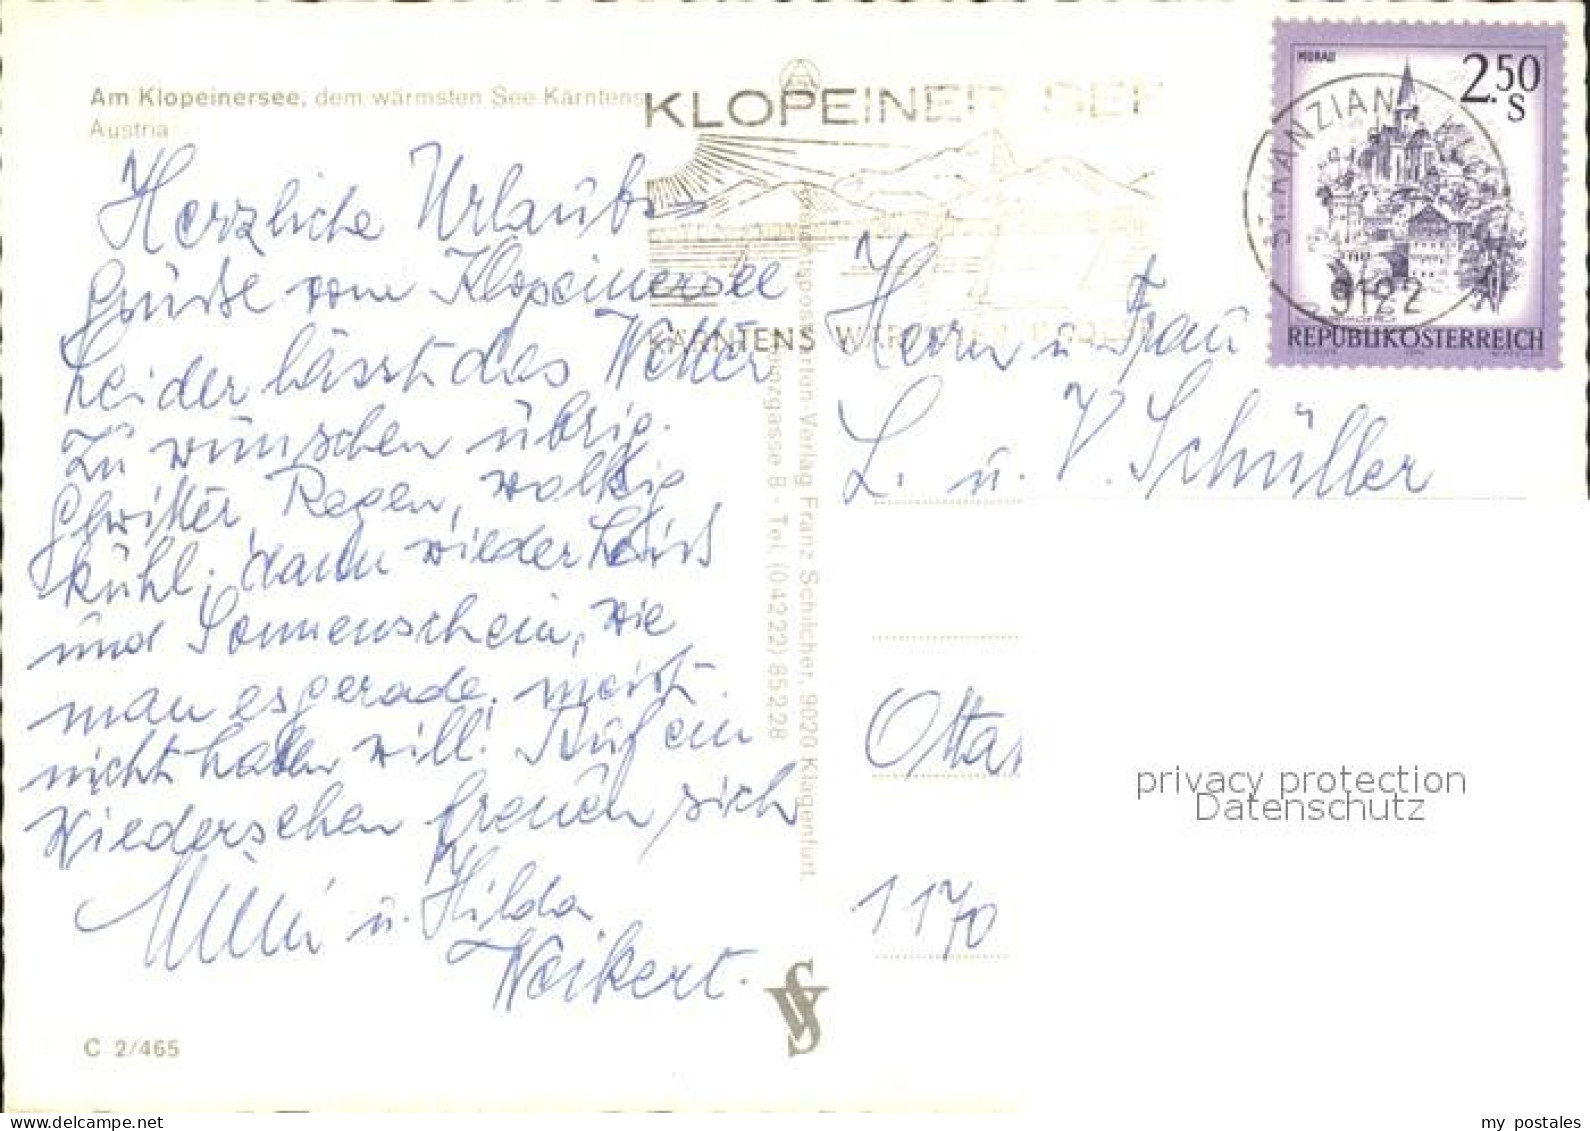 Am Klopeinersee, dem wärmsten See Kärntens
Austria
KLOPEINER SEE
KÄRNTENS
MURAU
2.50
S
ST. KANZIAN
9122
REPUBLIK ÖSTERREICH
Herzliche Urlaubs-
Grüße vom Klopeinersee
Leider lässt das Wetter
zu wünschen übrig.
Gewitter, Regen, wolkig
kühl, dann wieder heiß
und Sonnenschein, wie
man es gerade meist
nicht haben will! Auf ein
Wiedersehen freuen sich
Willi u. Hilda
Weikert.
Herrn u. Frau
L. u. V. Schüller
1170
Verlag Franz Schilcher, 9020 Klagenfurt
8 - Tel. (04222) 85228
C 2/465
privacy protection
Datenschutz
my postales